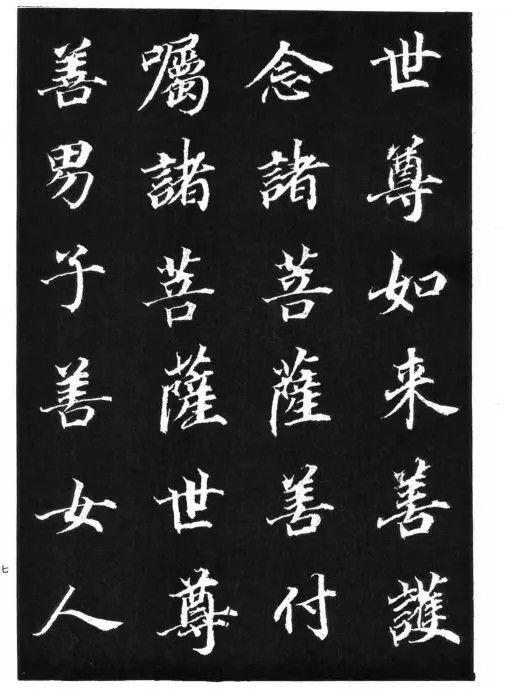 世尊如来善護
念諸菩薩善付
囑諸菩薩世尊
善男子善女人
七